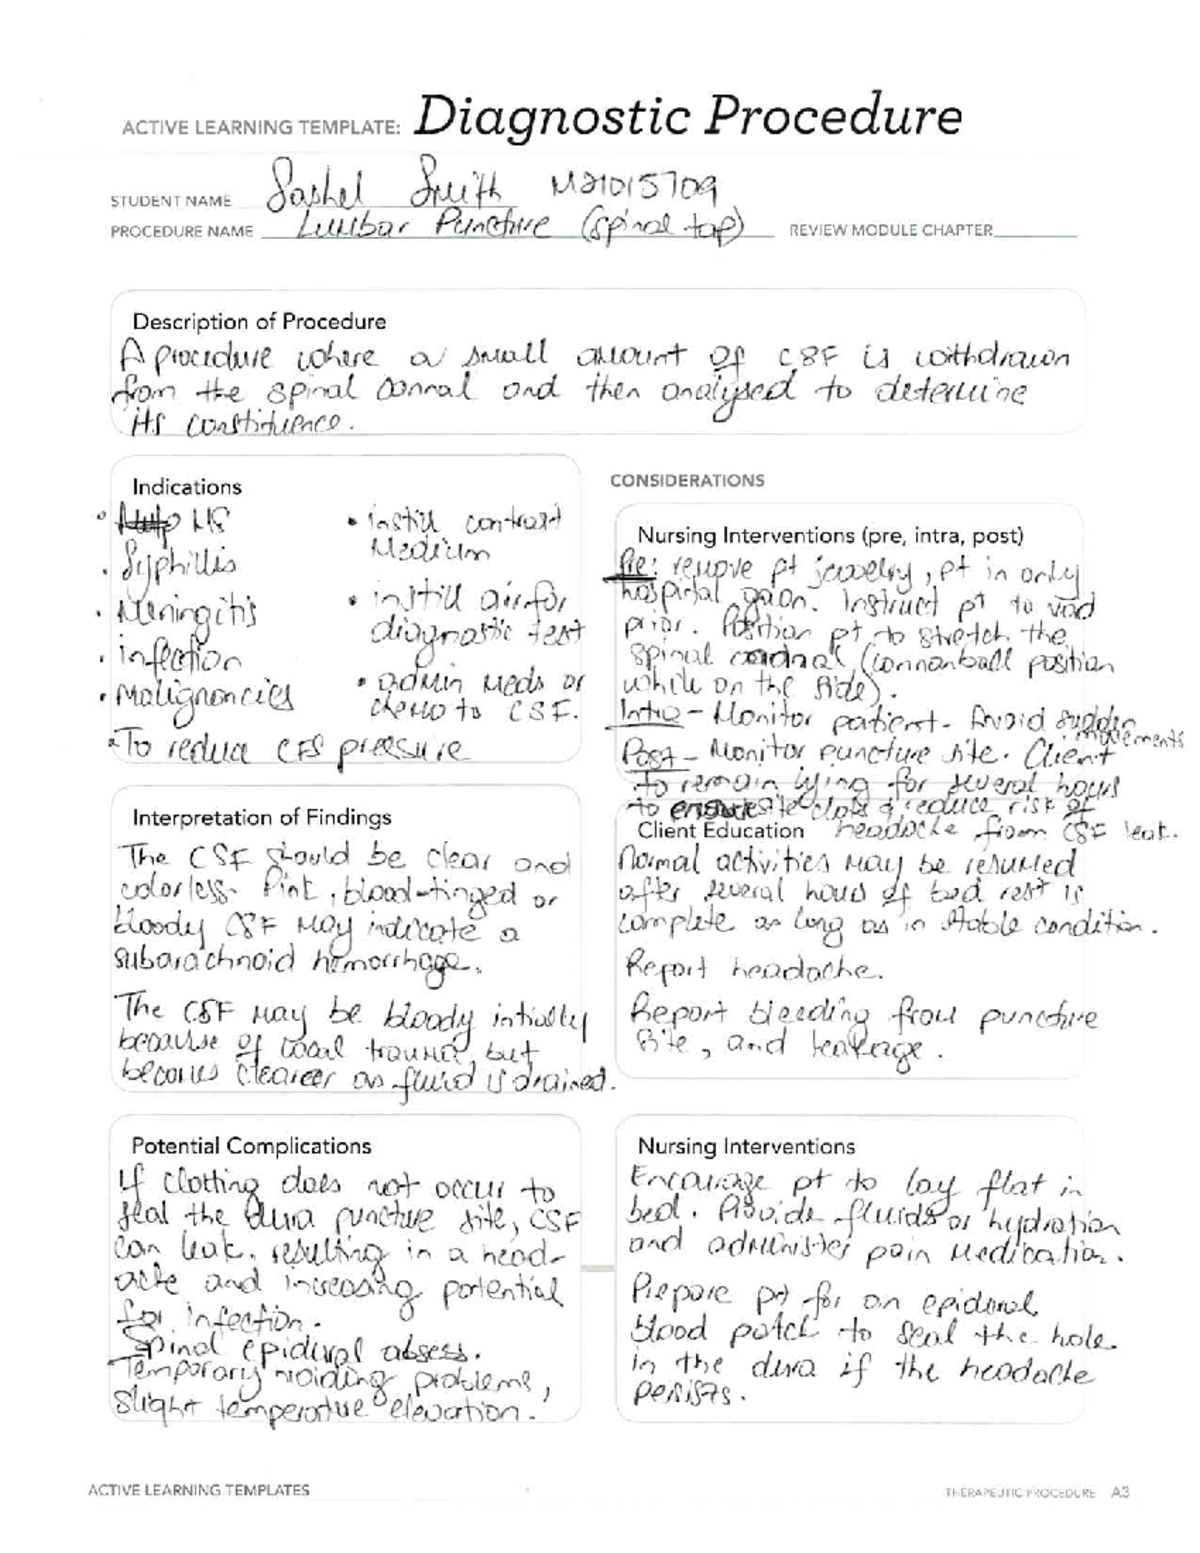 ACTIVE LEARNING TEMPLATE: Diagnostic Procedure
STUDENT NAME Sashel Smith M21015709
PROCEDURE NAME Lumbar Puncture (spinal tap) REVIEW MODULE CHAPTER
Description of Procedure
A procedure where a small amount of CSF is withdrawn
from the spinal cannal and then analysed to determine
its constituence.
Indications
• MS
• Syphillis
• Meningitis
• infection
• Malignancies
• To reduce CFS pressure
• instill contrast
Medium
• instill air for
diagnostic test
• admin meds or
chemo to CSF.
CONSIDERATIONS
Nursing Interventions (pre, intra, post)
Pre: remove pt jewelry, pt in only
hospital gaon. Instruct pt to void
prior. Position pt to stretch the
spinal (cannanball position
while on the side).
Intra - Monitor patient. Avoid sudden
movements
Post - Monitor puncture site. Client
to remain lying for several hours
to site clots & reduce risk of
headache from CSF leak.
Interpretation of Findings
The CSF should be clear and
colorless. Pink, blood-tinged or
bloody CSF may indicate a
subarachnoid hemorrhage.
The CSF may be bloody initially
because of local trauma, but
becomes clearer as fluid is drained.
Client Education
Normal activities may be resumed
after several hours of bed rest is
complete as long as in stable condition.
Report headache.
Report bleeding from puncture
site, and leakage.
Potential Complications
If clotting does not occur to
seal the dura puncture site, CSF
can leak, resulting in a head-
ache and increasing potential
for infection.
Spinal epidural absess.
Temporary voiding problems,
slight temperature elevation.
Nursing Interventions
Encourage pt to lay flat in
bed. Provide fluids or hydration
and administer pain medication.
Prepare pt for an epidural
blood patch to seal the hole
in the dura if the headache
persists.
ACTIVE LEARNING TEMPLATES
THERAPEUTIC PROCEDURE A3